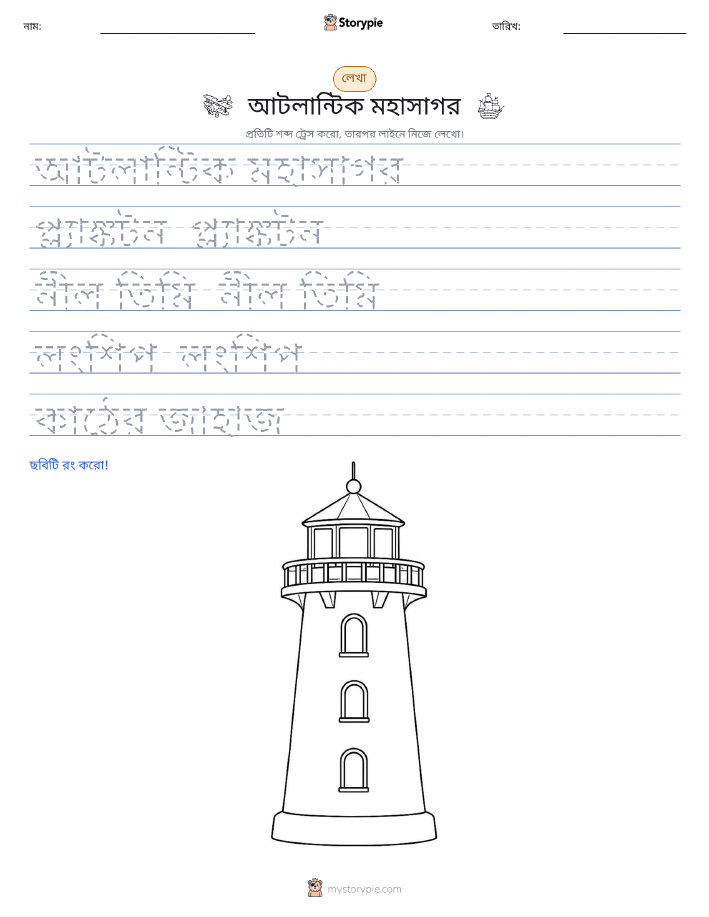 নাম:
Storypie
তারিখ:
লেখা
আটলান্টিক মহাসাগর
প্রতিটি শব্দ ট্রেস করো, তারপর লাইনে নিজে লেখো।
আটলান্টিক মহাসাগর
প্ল্যাঙ্কটন প্ল্যাঙ্কটন
নীল তিমি নীল তিমি
লংশিপ লংশিপ
কাঠের জাহাজ
ছবিটি রং করো!
mystorypie.com